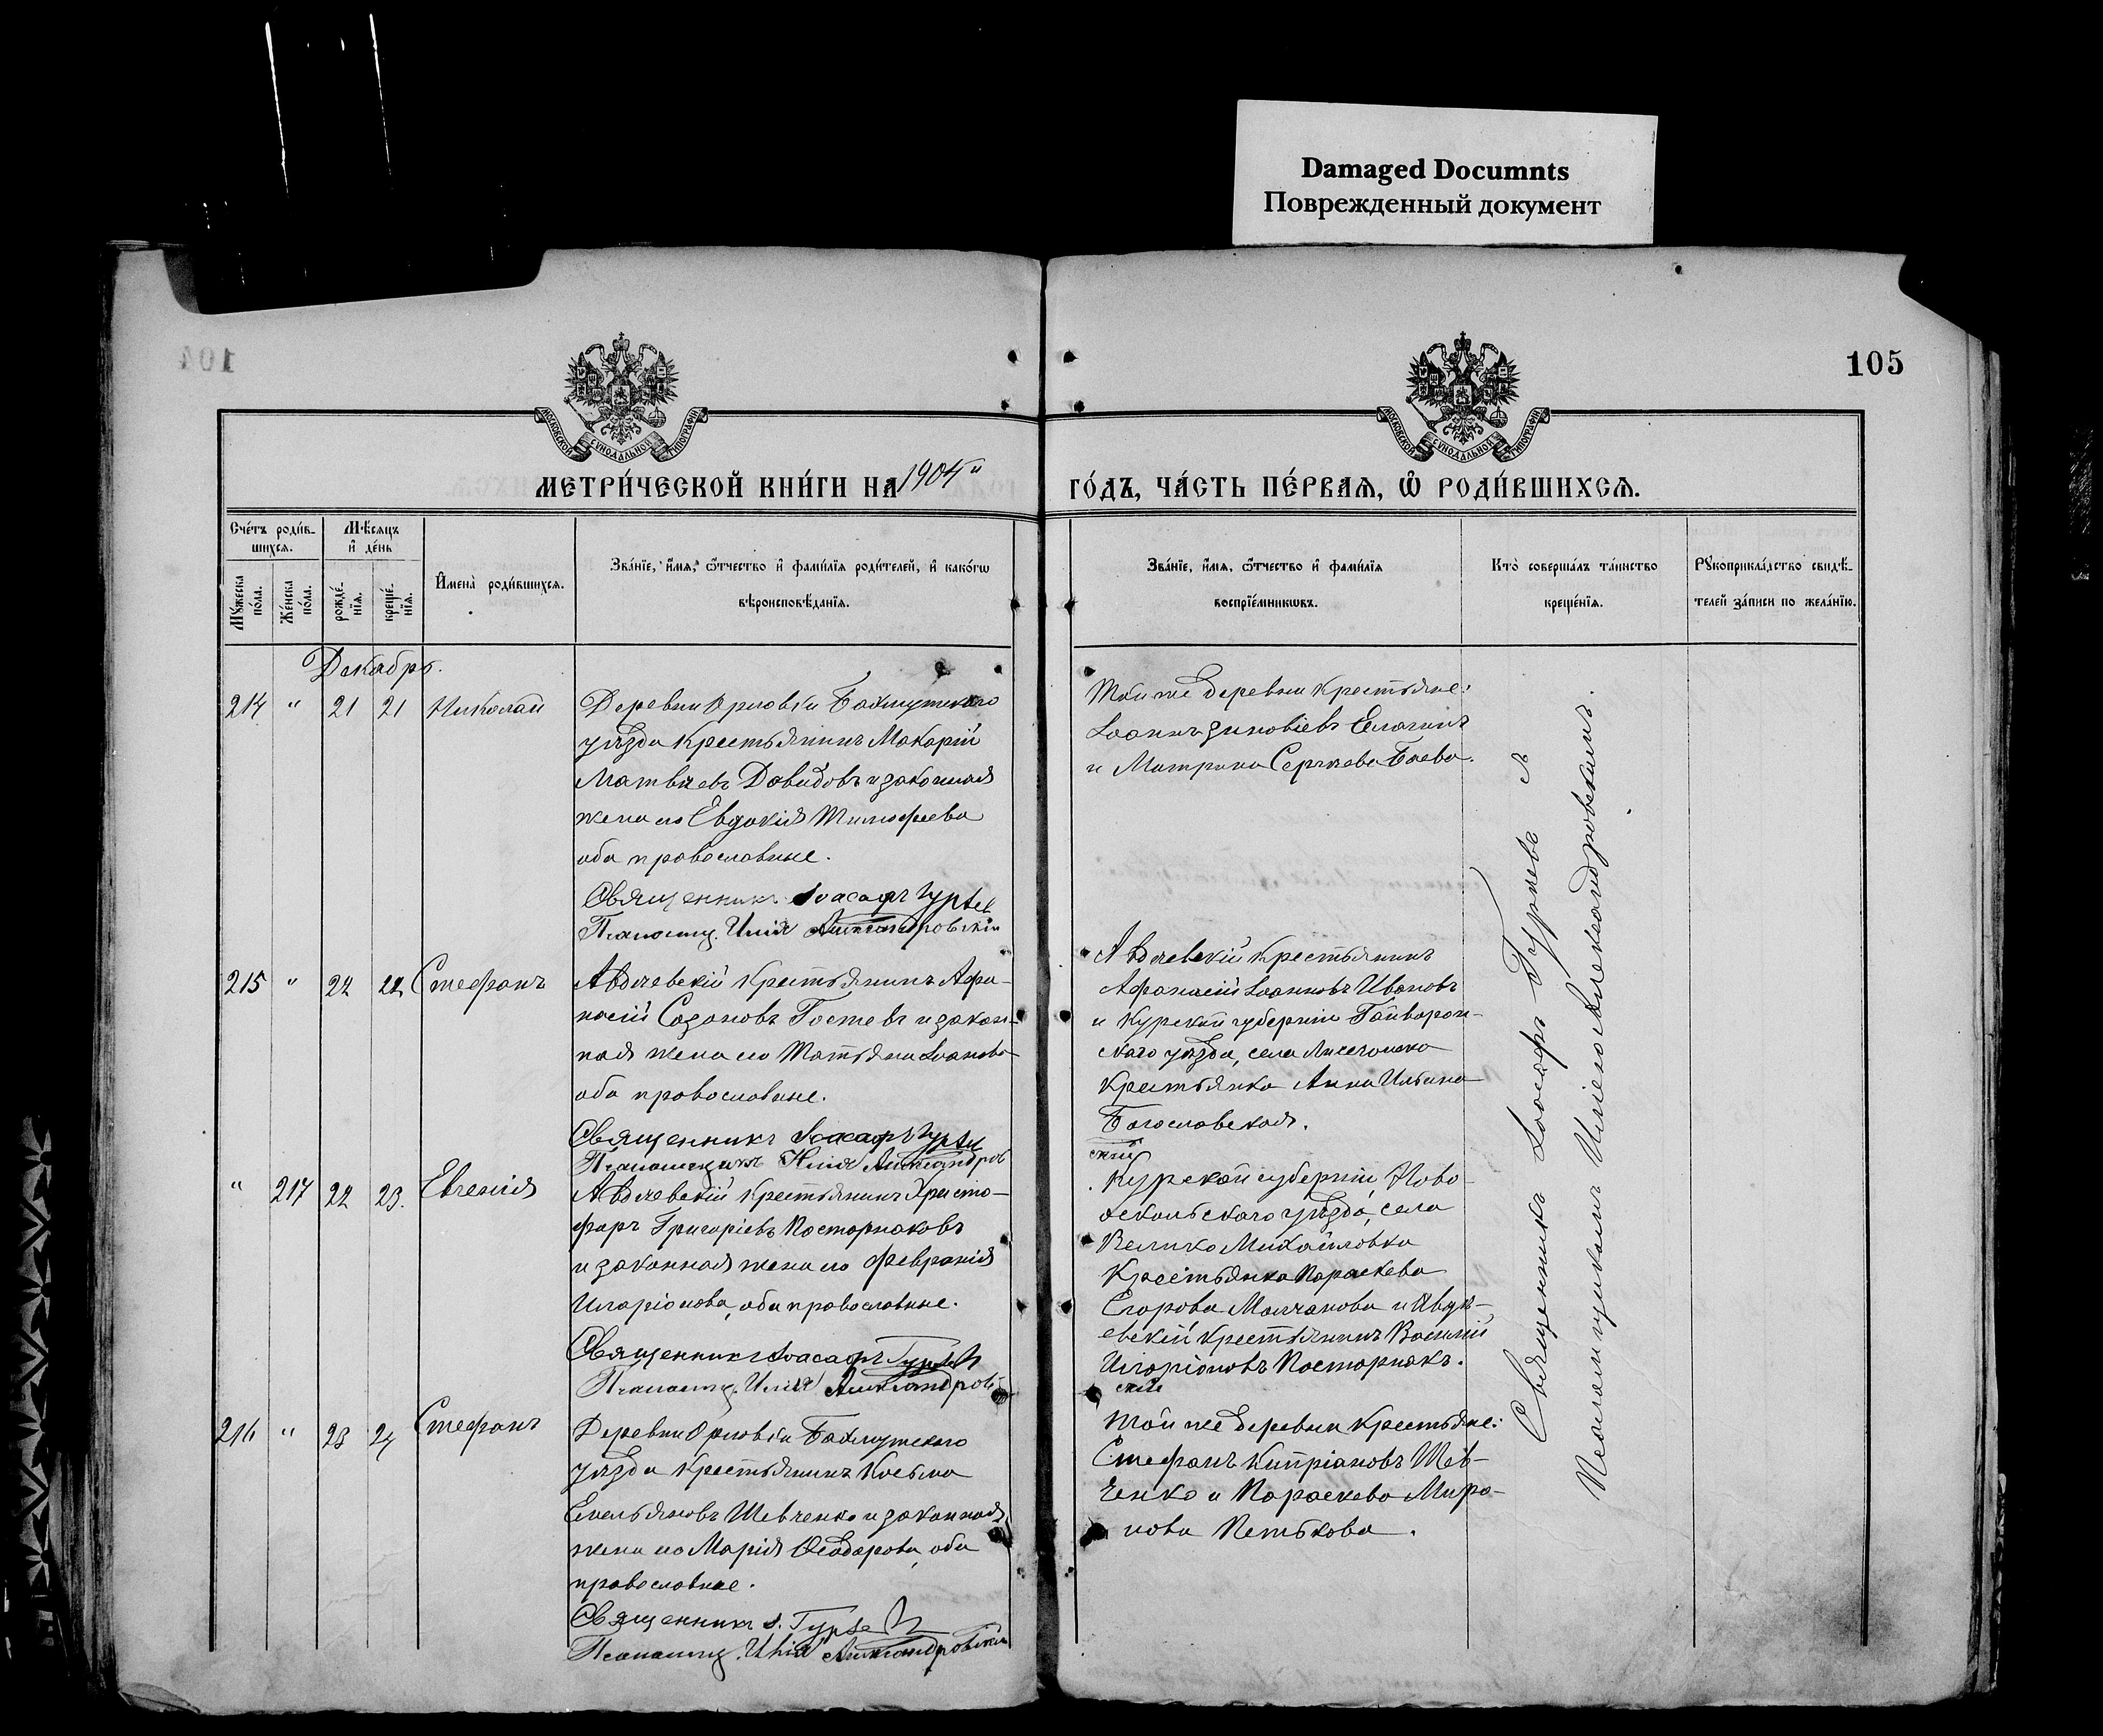 Damaged Documnts
Поврежденный документ
105
МЕТРИ́ЧЕСКОЙ КНИ́ГИ НА 1904й
ГО́ДЪ, ЧА́СТЬ ПЕ́РВАѦ, Ѡ҆ РОДИ́ВШИХСѦ.
Сче́тъ роди́в-
шихсѧ.
Мѣ́сѧцъ
и҆ де́нь
Мꙋ́жеска
по́ла.
Же́нска
по́ла.
рожде́-
нїѧ.
креще́-
нїѧ.
И҆мена̀ роди́вшихсѧ.
Зва́нїе, и҆́мѧ, ѻ҆́тчество и҆ фами́лїѧ роди́телей, и҆ како́гѡ
вѣроисповѣ́данїѧ.
Зва́нїе, и҆́мѧ, ѻ҆́тчество и҆ фами́лїѧ
воспрїе́мникѡвъ.
Кто̀ соверша́лъ та́инство
креще́нїѧ.
Рꙋкоприкла́дство свидѣ́-
телей за́писи по жела́нїю.
Декабрь.
214 " 21 21 Николай
Деревни Орловки Бахмутскаго
уѣзда крестьянинъ Макарій
Матвѣевъ Давидовъ и законная
жена его Евдокія Тимофеева
оба православные.
Священникъ Іоасафъ Гурьев
Псаломщ. Илія Александровскій
Той же деревни крестьяне:
Іоаннъ Зиновіевъ Елагинъ
и Матрона Сергеева Баева.
215 " 22 22 Стефанъ
Авдеевскій крестьянинъ Афа-
насій Созоновъ Гостевъ и закон-
ная жена его Татьяна Іоанова
оба православные.
Священникъ Іоасафъ Гурьев
Псаломщикъ Илія Александров
скій
Авдеевскій крестьянинъ
Афанасій Іоанновъ Ивановъ
и Курской губерніи Гайворон-
скаго уѣзда, села
крестьянка Анна Ильина
Богославская.
" 217 22 23. Евгенія
Авдеевскій крестьянинъ Христо-
форъ Григоріевъ Посторнаковъ
и законная жена его Февронія
Иларіонова, оба православные.
Священникъ Іоасафъ Гурьевъ
Псаломщ. Илія Александров-
скій
Курской губерніи, Ново-
оскольскаго уѣзда, села
Велико Михайловка
Крестьянка Параскева
Егорова Молчанова и Авде-
евскій крестьянинъ Василій
Иларіоновъ Посторнакъ.
216 " 23 24 Стефанъ
Деревни Орловки Бахмутскаго
уѣзда крестьянинъ Косьма
Емельяновъ Шевченко и законная
жена его Марія Ѳеодорова, оба
православные.
Священникъ І. Гурьевъ
Псаломщ. Илія Александровскій
Той же деревни крестьяне:
Стефанъ Кипріановъ Шев-
ченко и Параскева Миро-
нова Петькова.
Священникъ Іоасафъ Гурьевъ съ
Псаломщикомъ Иліею Александровскимъ.